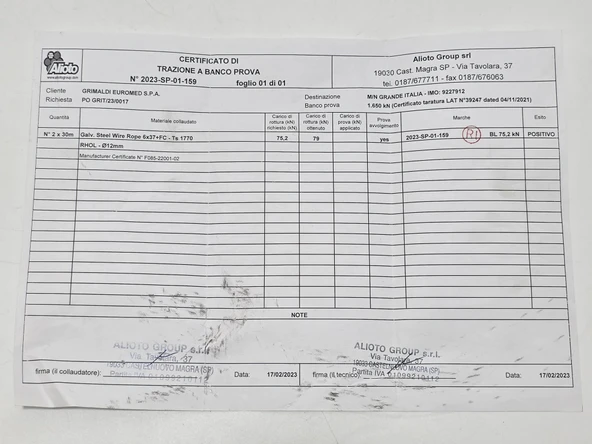 Alioto
www.aliotogroup.com
CERTIFICATO DI
TRAZIONE A BANCO PROVA
N° 2023-SP-01-159 foglio 01 di 01
Alioto Group srl
19030 Cast. Magra SP - Via Tavolara, 37
tel. 0187/677711 - fax 0187/676063
Cliente GRIMALDI EUROMED S.P.A.
Richiesta PO GRIT/23/0017
Destinazione M/N GRANDE ITALIA - IMO: 9227912
Banco prova 1.650 kN (Certificato taratura LAT N°39247 dated 04/11/2021)
Quantita Materiale collaudato Carico di rottura (kN) richiesto (kN) Carico di rottura (kN) ottenuto Carico di prova (kN) applicato Prova avvolgimento Marche Esito
N° 2 x 30m Galv. Steel Wire Rope 6x37+FC - Ts 1770 75,2 79 yes 2023-SP-01-159 R1 BL 75,2 kN POSITIVO
RHOL - Ø12mm
Manufacturer Certificate N° F085-22001-02
NOTE
ALIOTO GROUP s.r.l.
Via Tavolara, 37
19030 CASTELNUOVO MAGRA (SP)
Partita IVA 01099210112
ALIOTO GROUP s.r.l.
Via Tavolara, 37
19030 CASTELNUOVO MAGRA (SP)
Partita IVA 01099210112
firma (il collaudatore): Data: 17/02/2023 firma (il tecnico): Data: 17/02/2023